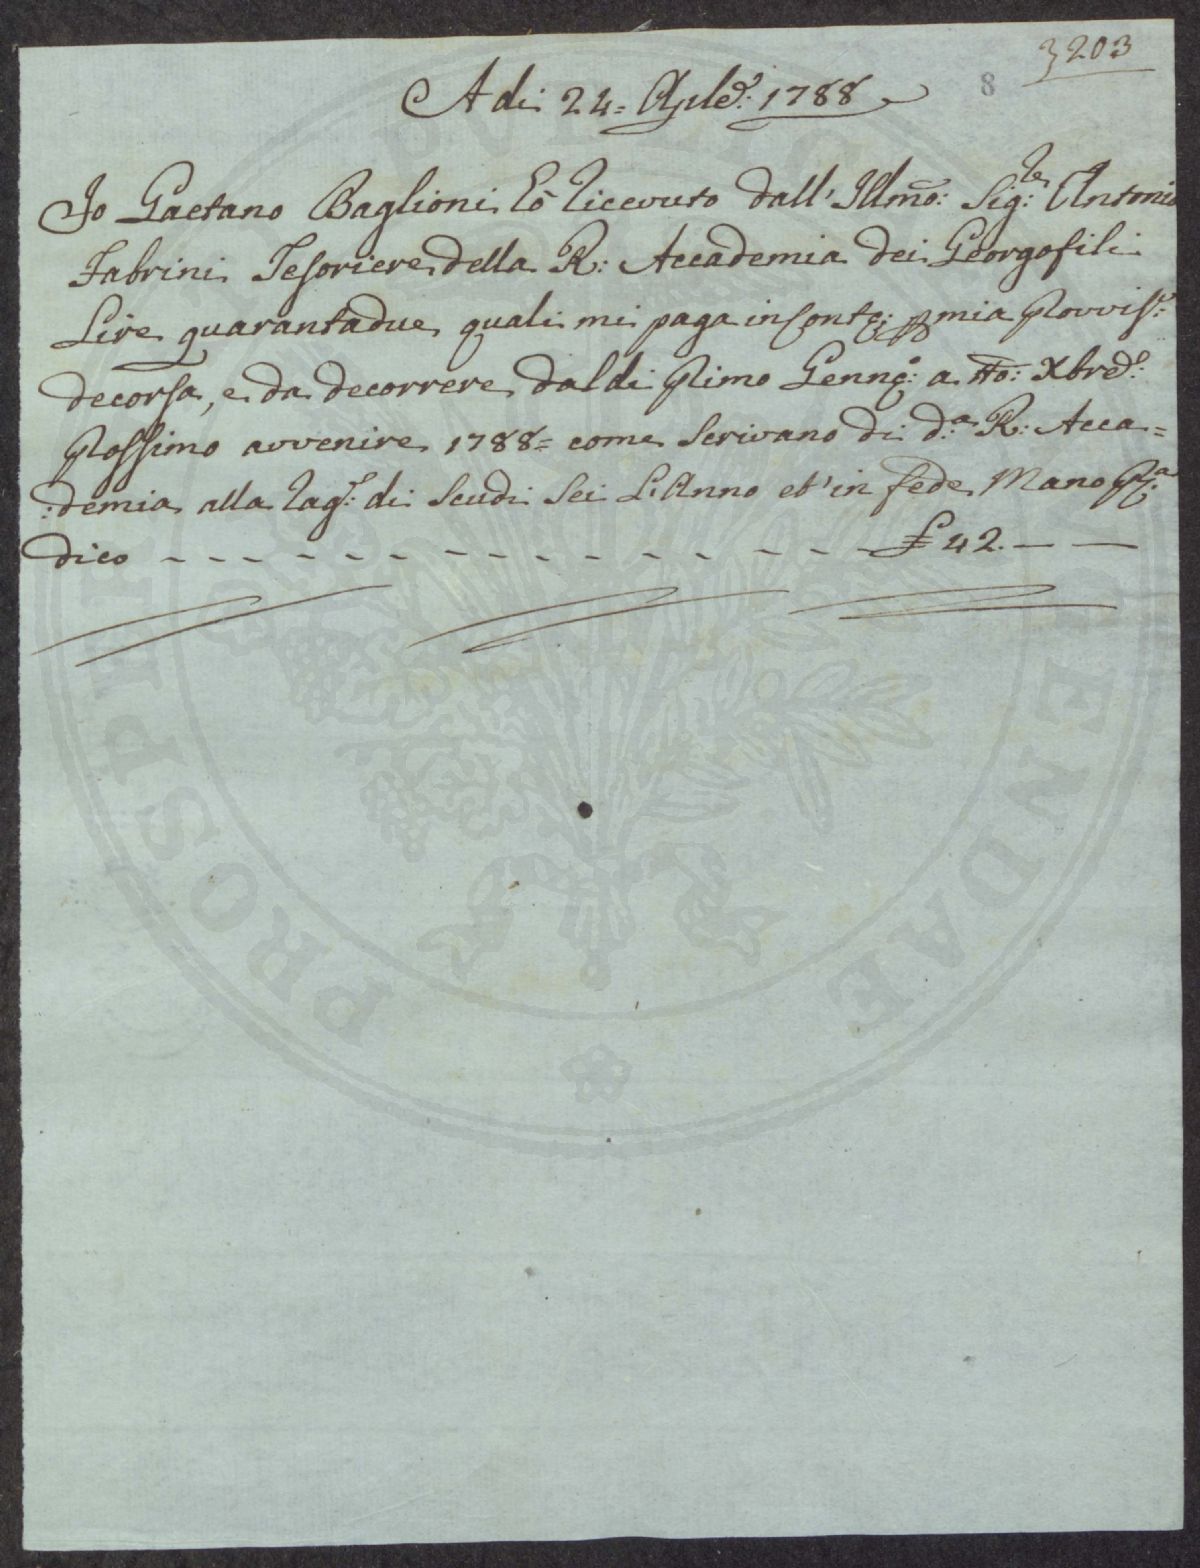 3203
8
A di 24= Aple. 1788
Io Gaetano Baglioni ho ricevuto dall' Illmo: Sig:re Antonio
Fabrini Tesoriere della R: Accademia dei Georgofili
Lire quarantadue, quali mi paga in conto mia Provvis:e
decorsa, e da decorrere dal di Primo Genn:o a tto: Xbre
Prossimo avvenire 1788= come Scrivano di d:a R: Acca=
:demia alla rag:e di Scudi Sei L'Anno et in fede Mano pp:a
dico £ 42.
PROSPERITATI PUBLICAE AUGENDAE